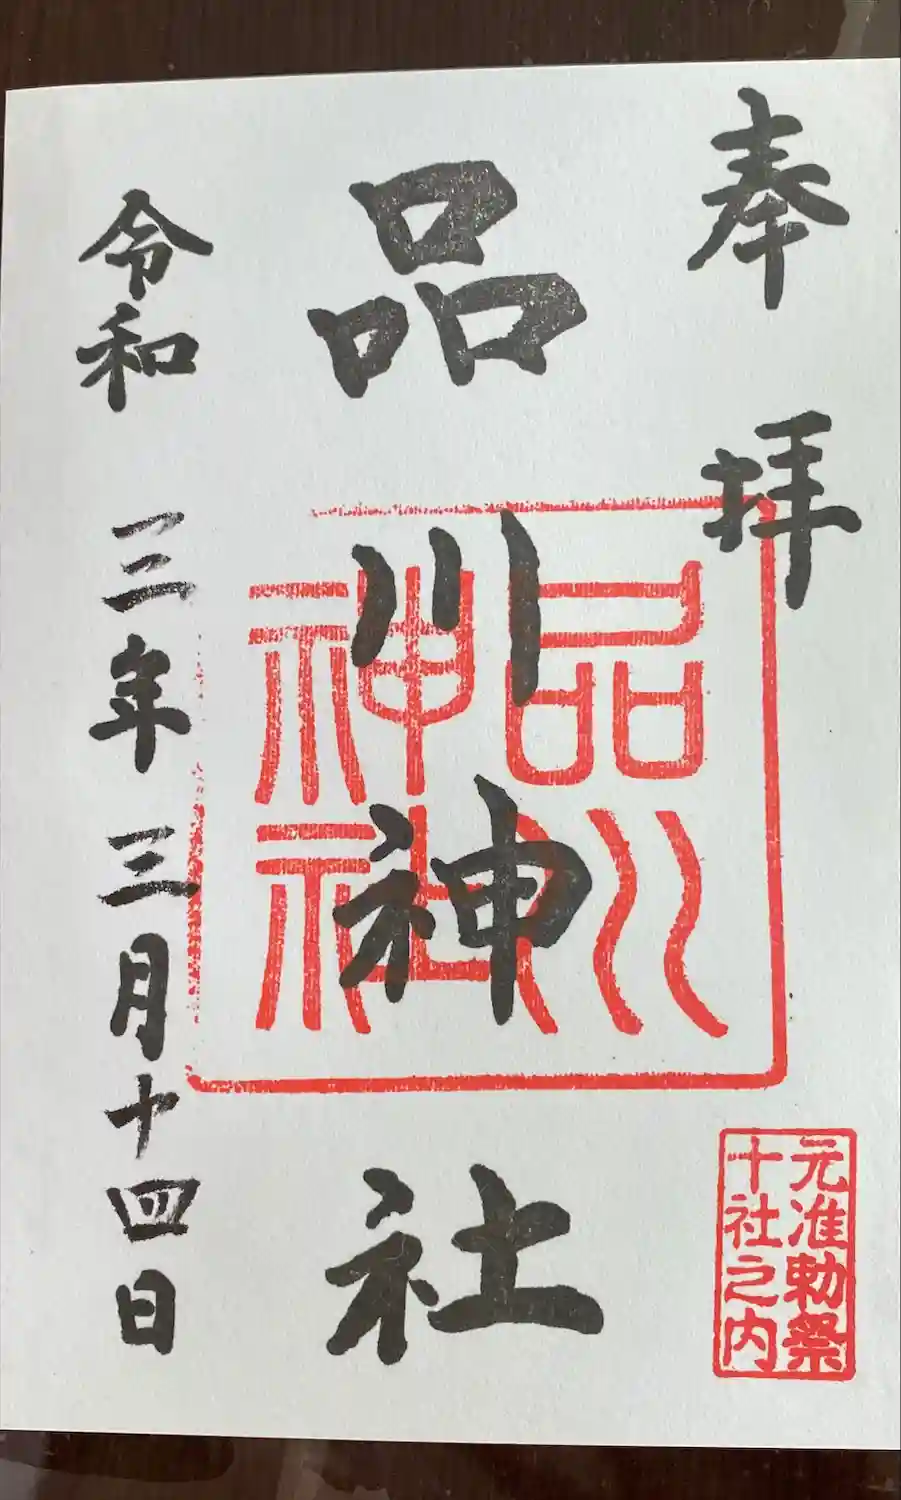 奉拝
品川神社
品川
神社
元准勅祭
十社之内
令和三年三月十四日